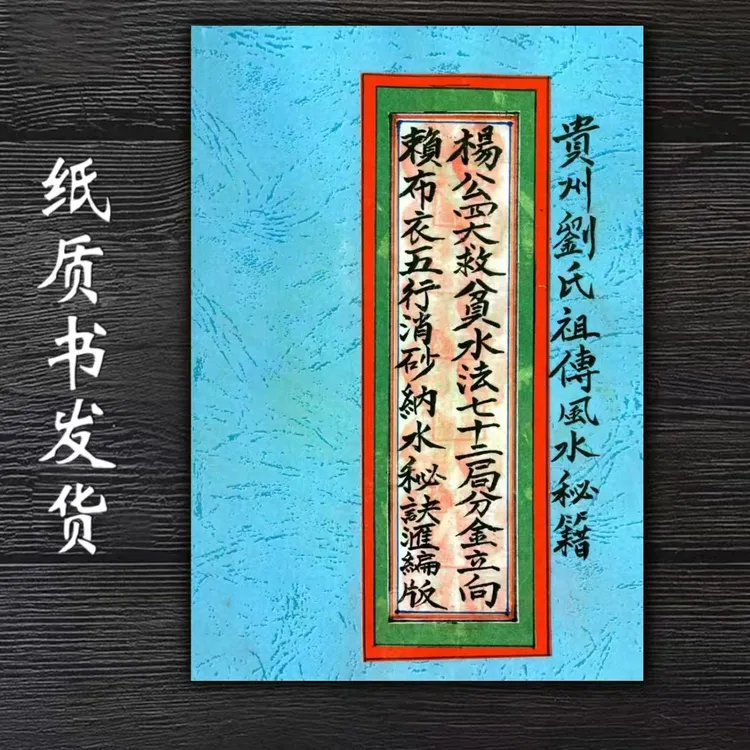 纸质书发货
貴州劉氏祖傳風水秘籍
楊公四大救貧水法七十二局分金立向
賴布衣五行消砂納水秘訣滙編版